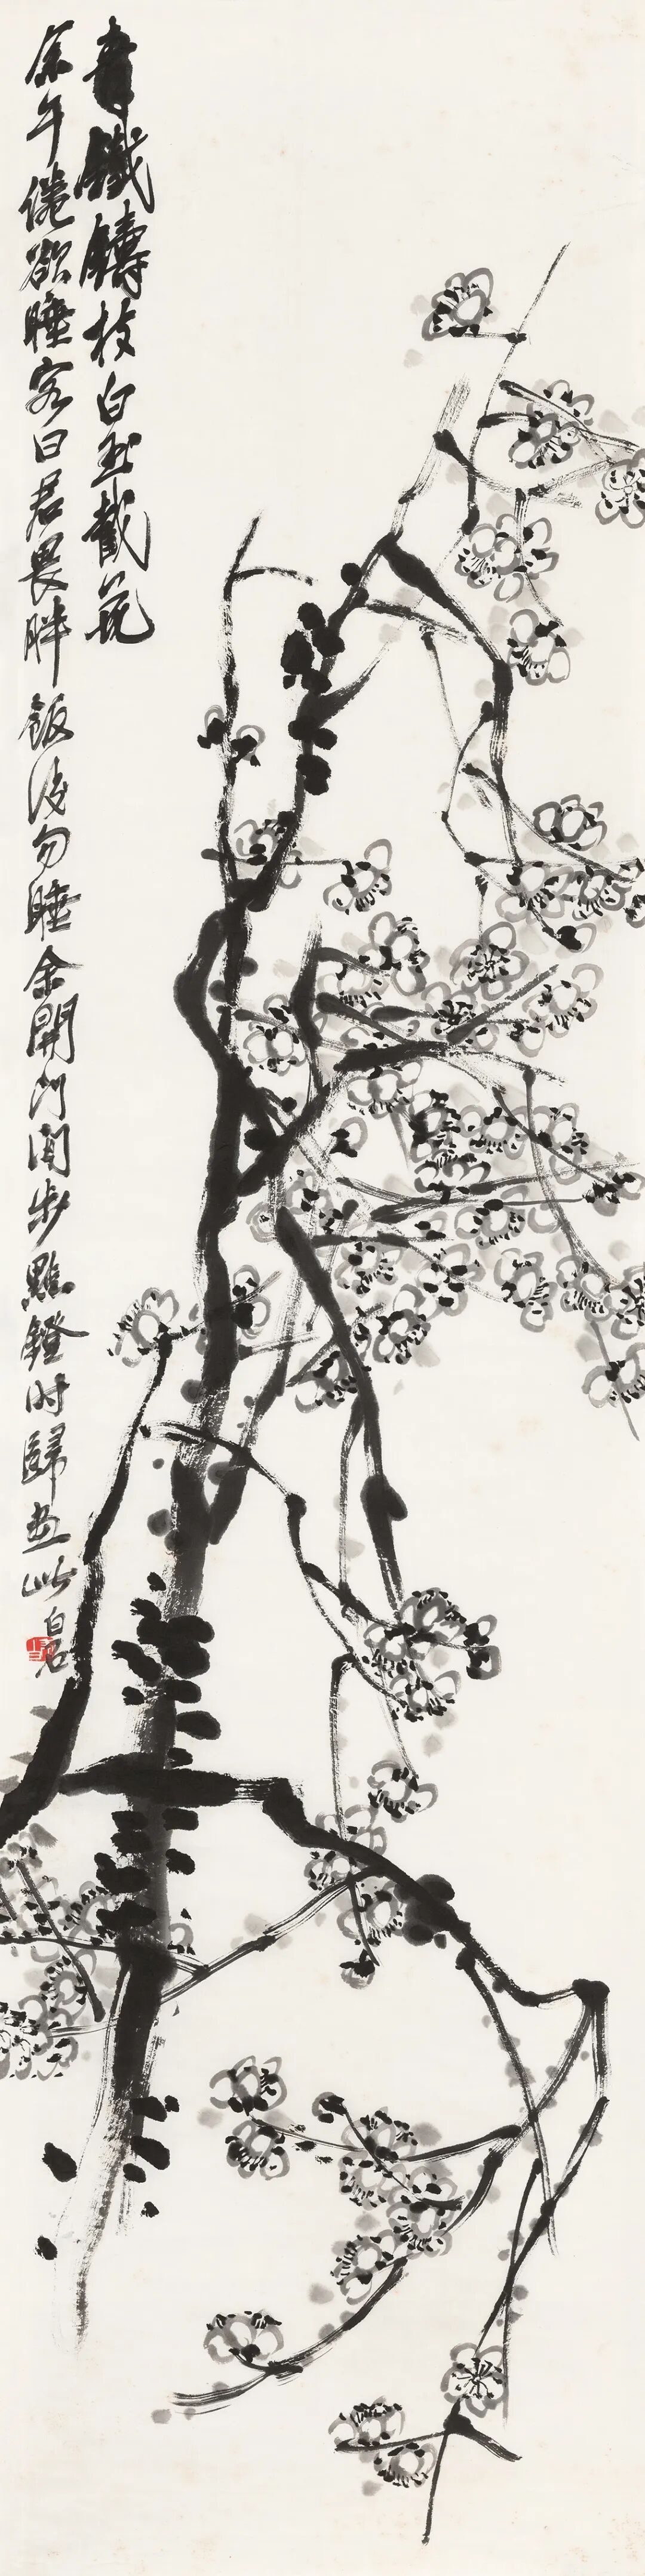 青鐵鑄枝白玉截花
余午倦欲睡客曰君畏胖飯後勿睡余開門閒步點鐙時歸畫此白石